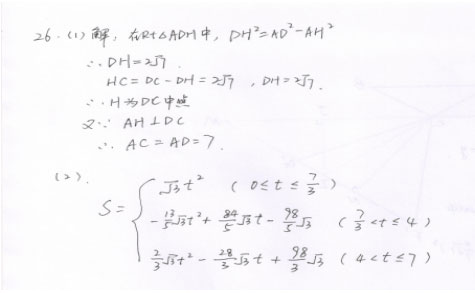 26.(1)解:在Rt△ADH中,DH²=AD²-AH²
∴DH=2√7.
HC=DC-DH=2√7,DH=2√7.
∴H为DC中点
又∵AH⊥DC
∴AC=AD=7.
(2).
S={ √3t² (0≤t≤7/3)
-13/5√3t²+84/5√3t-98/5√3 (7/3<t≤4)
2/3√3t²-28/3√3t+98/3√3 (4<t≤7)